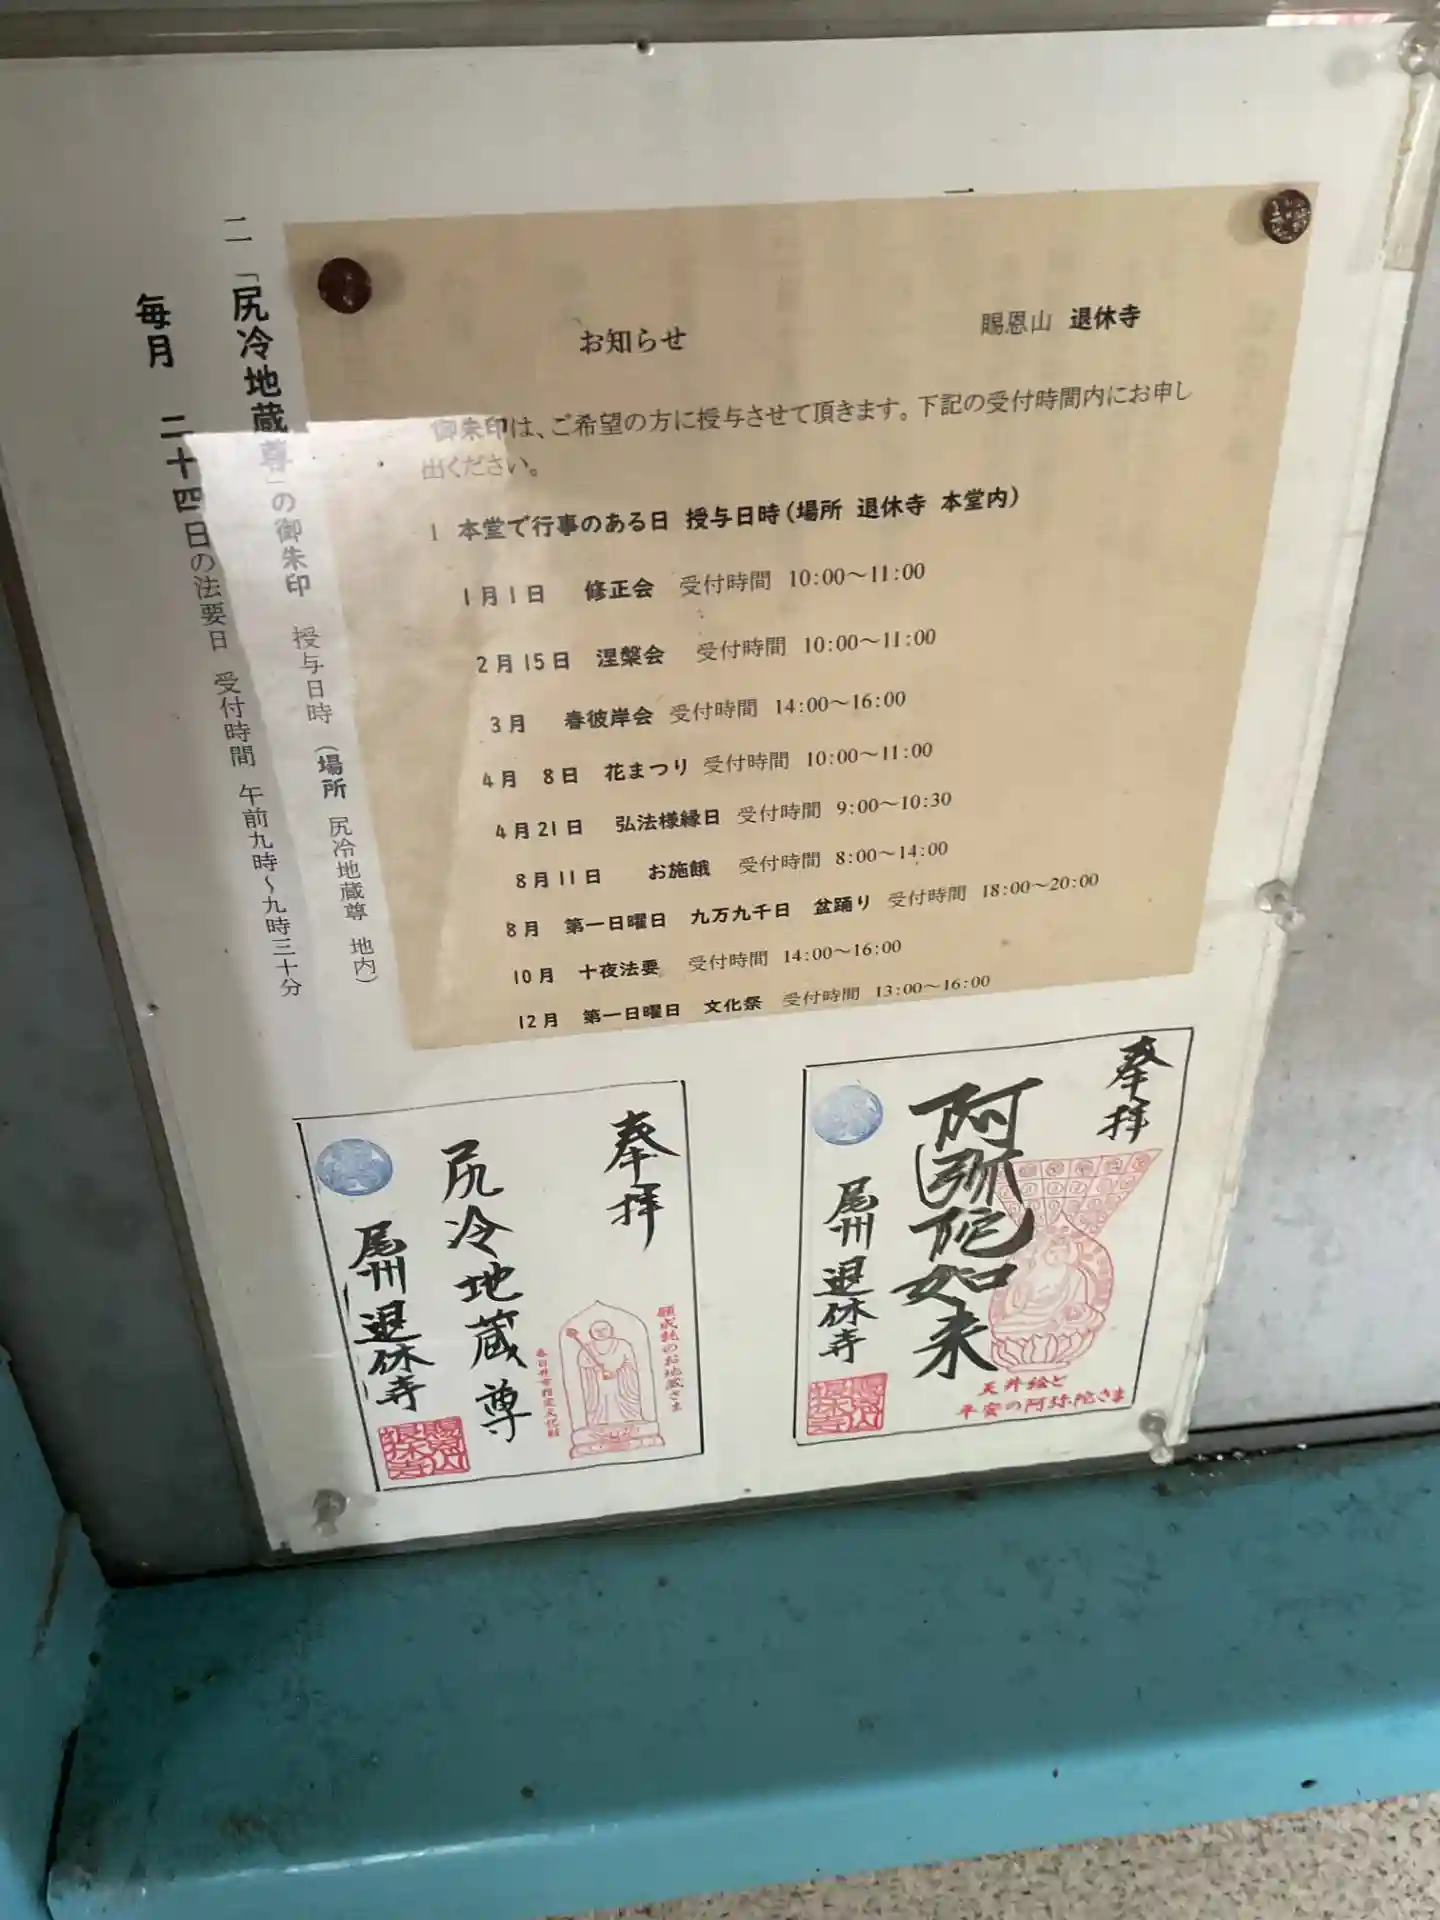 お知らせ
賜恩山 退休寺
御朱印は、ご希望の方に授与させて頂きます。下記の受付時間内にお申し
出ください。
1 本堂で行事のある日 授与日時(場所 退休寺 本堂内)
1月1日 修正会 受付時間 10:00～11:00
2月15日 涅槃会 受付時間 10:00～11:00
3月 春彼岸会 受付時間 14:00～16:00
4月 8日 花まつり 受付時間 10:00～11:00
4月21日 弘法様縁日 受付時間 9:00～10:30
8月11日 お施餓 受付時間 8:00～14:00
8月 第一日曜日 九万九千日 盆踊り 受付時間 18:00～20:00
10月 十夜法要 受付時間 14:00～16:00
12月 第一日曜日 文化祭 受付時間 13:00～16:00
二 「尻冷地蔵尊」の御朱印 授与日時 (場所 尻冷地蔵尊 地内)
毎月 二十四日の法要日 受付時間 午前九時～九時三十分
奉拝
阿弥陀如来
尾州退休寺
天井絵と
平安の阿弥陀さま
奉拝
尻冷地蔵尊
尾州退休寺
願成就のお地蔵さま
春日井市指定文化財